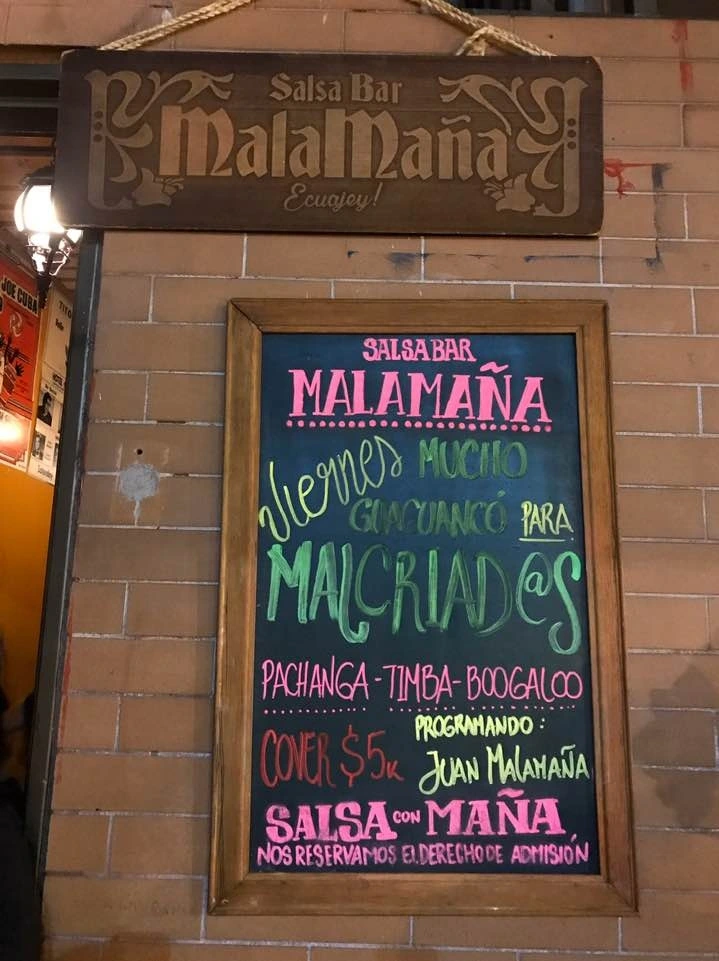 Salsa Bar
MalaMaña
Ecuajey!
JOE CUBA
TITO
SALSA BAR
MALAMAÑA
Viernes MUCHO
GUACUANCÓ PARA
MALCRIAD@S
PACHANGA - TIMBA - BOOGALOO
PROGRAMANDO:
COVER $5K JUAN MALAMAÑA
SALSA CON MAÑA
NOS RESERVAMOS EL DERECHO DE ADMISIÓN